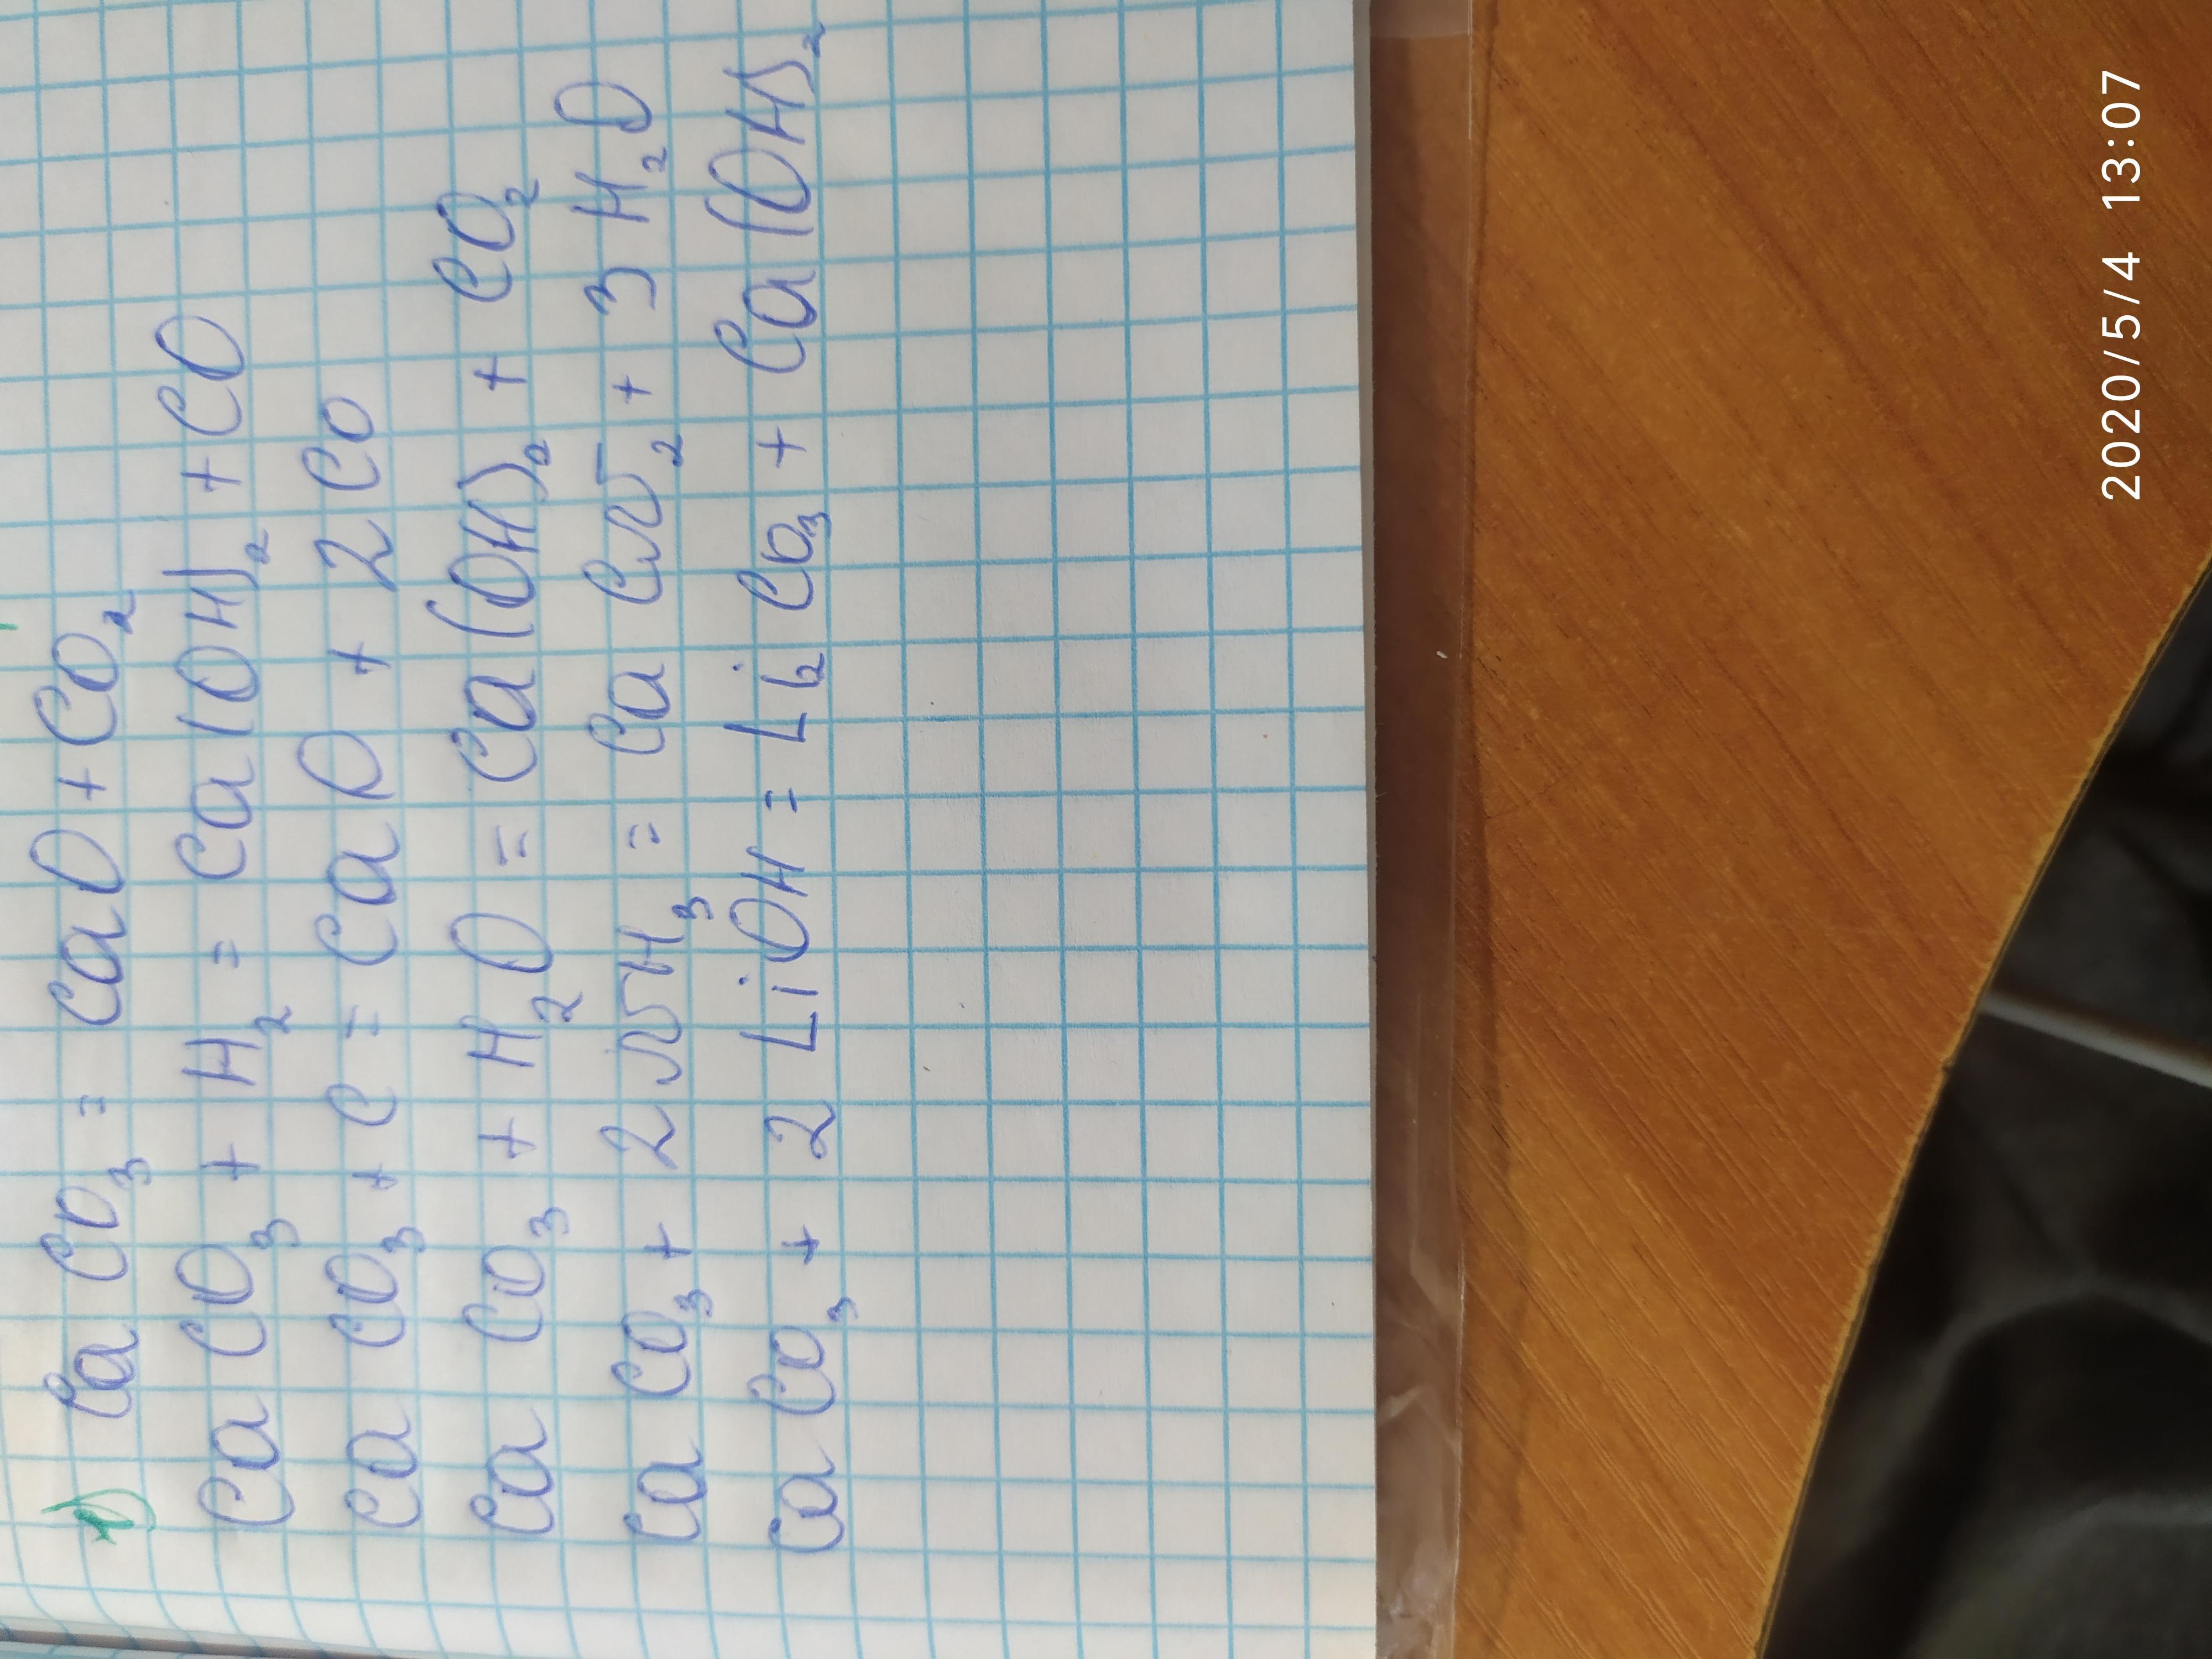 1) CaCO₃ = CaO + CO₂
CaCO₃ + H₂ = Ca(OH)₂ + CO
CaCO₃ + C = CaO + 2CO
CaCO₃ + H₂O = Ca(OH)₂ + CO₂
CaCO₃ + 2NH₃ = CaCN₂ + 3H₂O
CaCO₃ + 2LiOH = Li₂CO₃ + Ca(OH)₂
2020/5/4 13:07